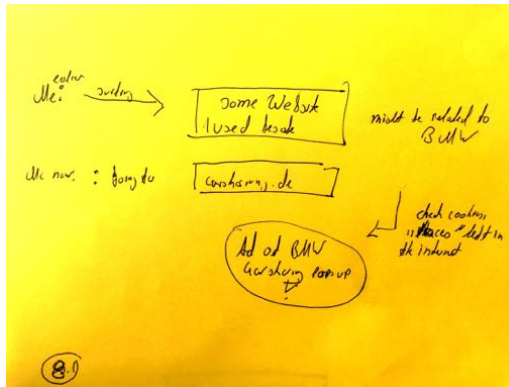 earlier
Me: surfing
some Website
I used before
might be related to
BMW
Me now: going to
carsharing.de
check cookies
"traces" left in
the internet
Ad of BMW
Carsharing Pop up
8.)